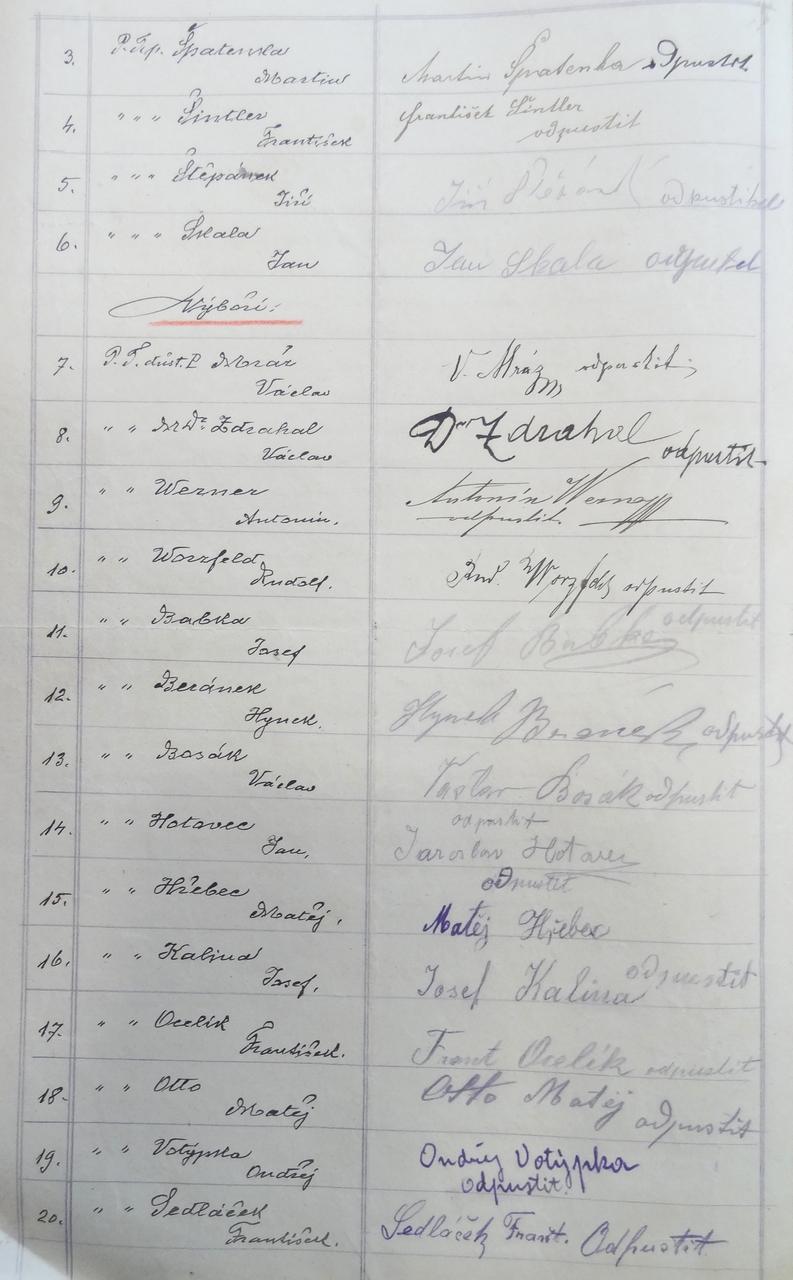 3. P. Tip. Špatenka
Martin
Martin Špatenka odpustit
4. " " " Šintler
František
František Šintler
odpustit
5. " " " Štěpánek
Jiří
Jiří odpustit
6. " " " Skala
Jan
Jan Skala odpustit
Výboři:
7. P. T. důst. P Mráz
Václav
V. Mráz odpustit
8. " " MUDr Zdrahal
Václav
Dr Zdrahal odpustit
9. " " Werner
Antonín.
Antonín Werner
odpustit.
10. " " Worzfeld
Rudolf.
Rud. Worzfeld odpustit
11. " " Babka
Josef
odpustit
Josef Babka
12. " " Beránek
Hynek.
Hynek Beránek odpustit
13. " " Bosák
Václav
Václav Bosák odpustit
14. " " Hotovec
Jan,
odpustit
Jaroslav Hotovec
15. " " Hřebec
Matěj,
odpustit
Matěj Hřebec
16. " " Kalina
Josef,
Josef Kalina odpustit
17. " " Ocelík
František.
Frant Ocelík odpustit
18. " " Otto
Matěj
Otto Matěj odpustit
19. " " Votýpka
Ondřej
Ondřej Votýpka
odpustit.
20. " " Sedláček
František.
Sedláček Frant. Odpustit